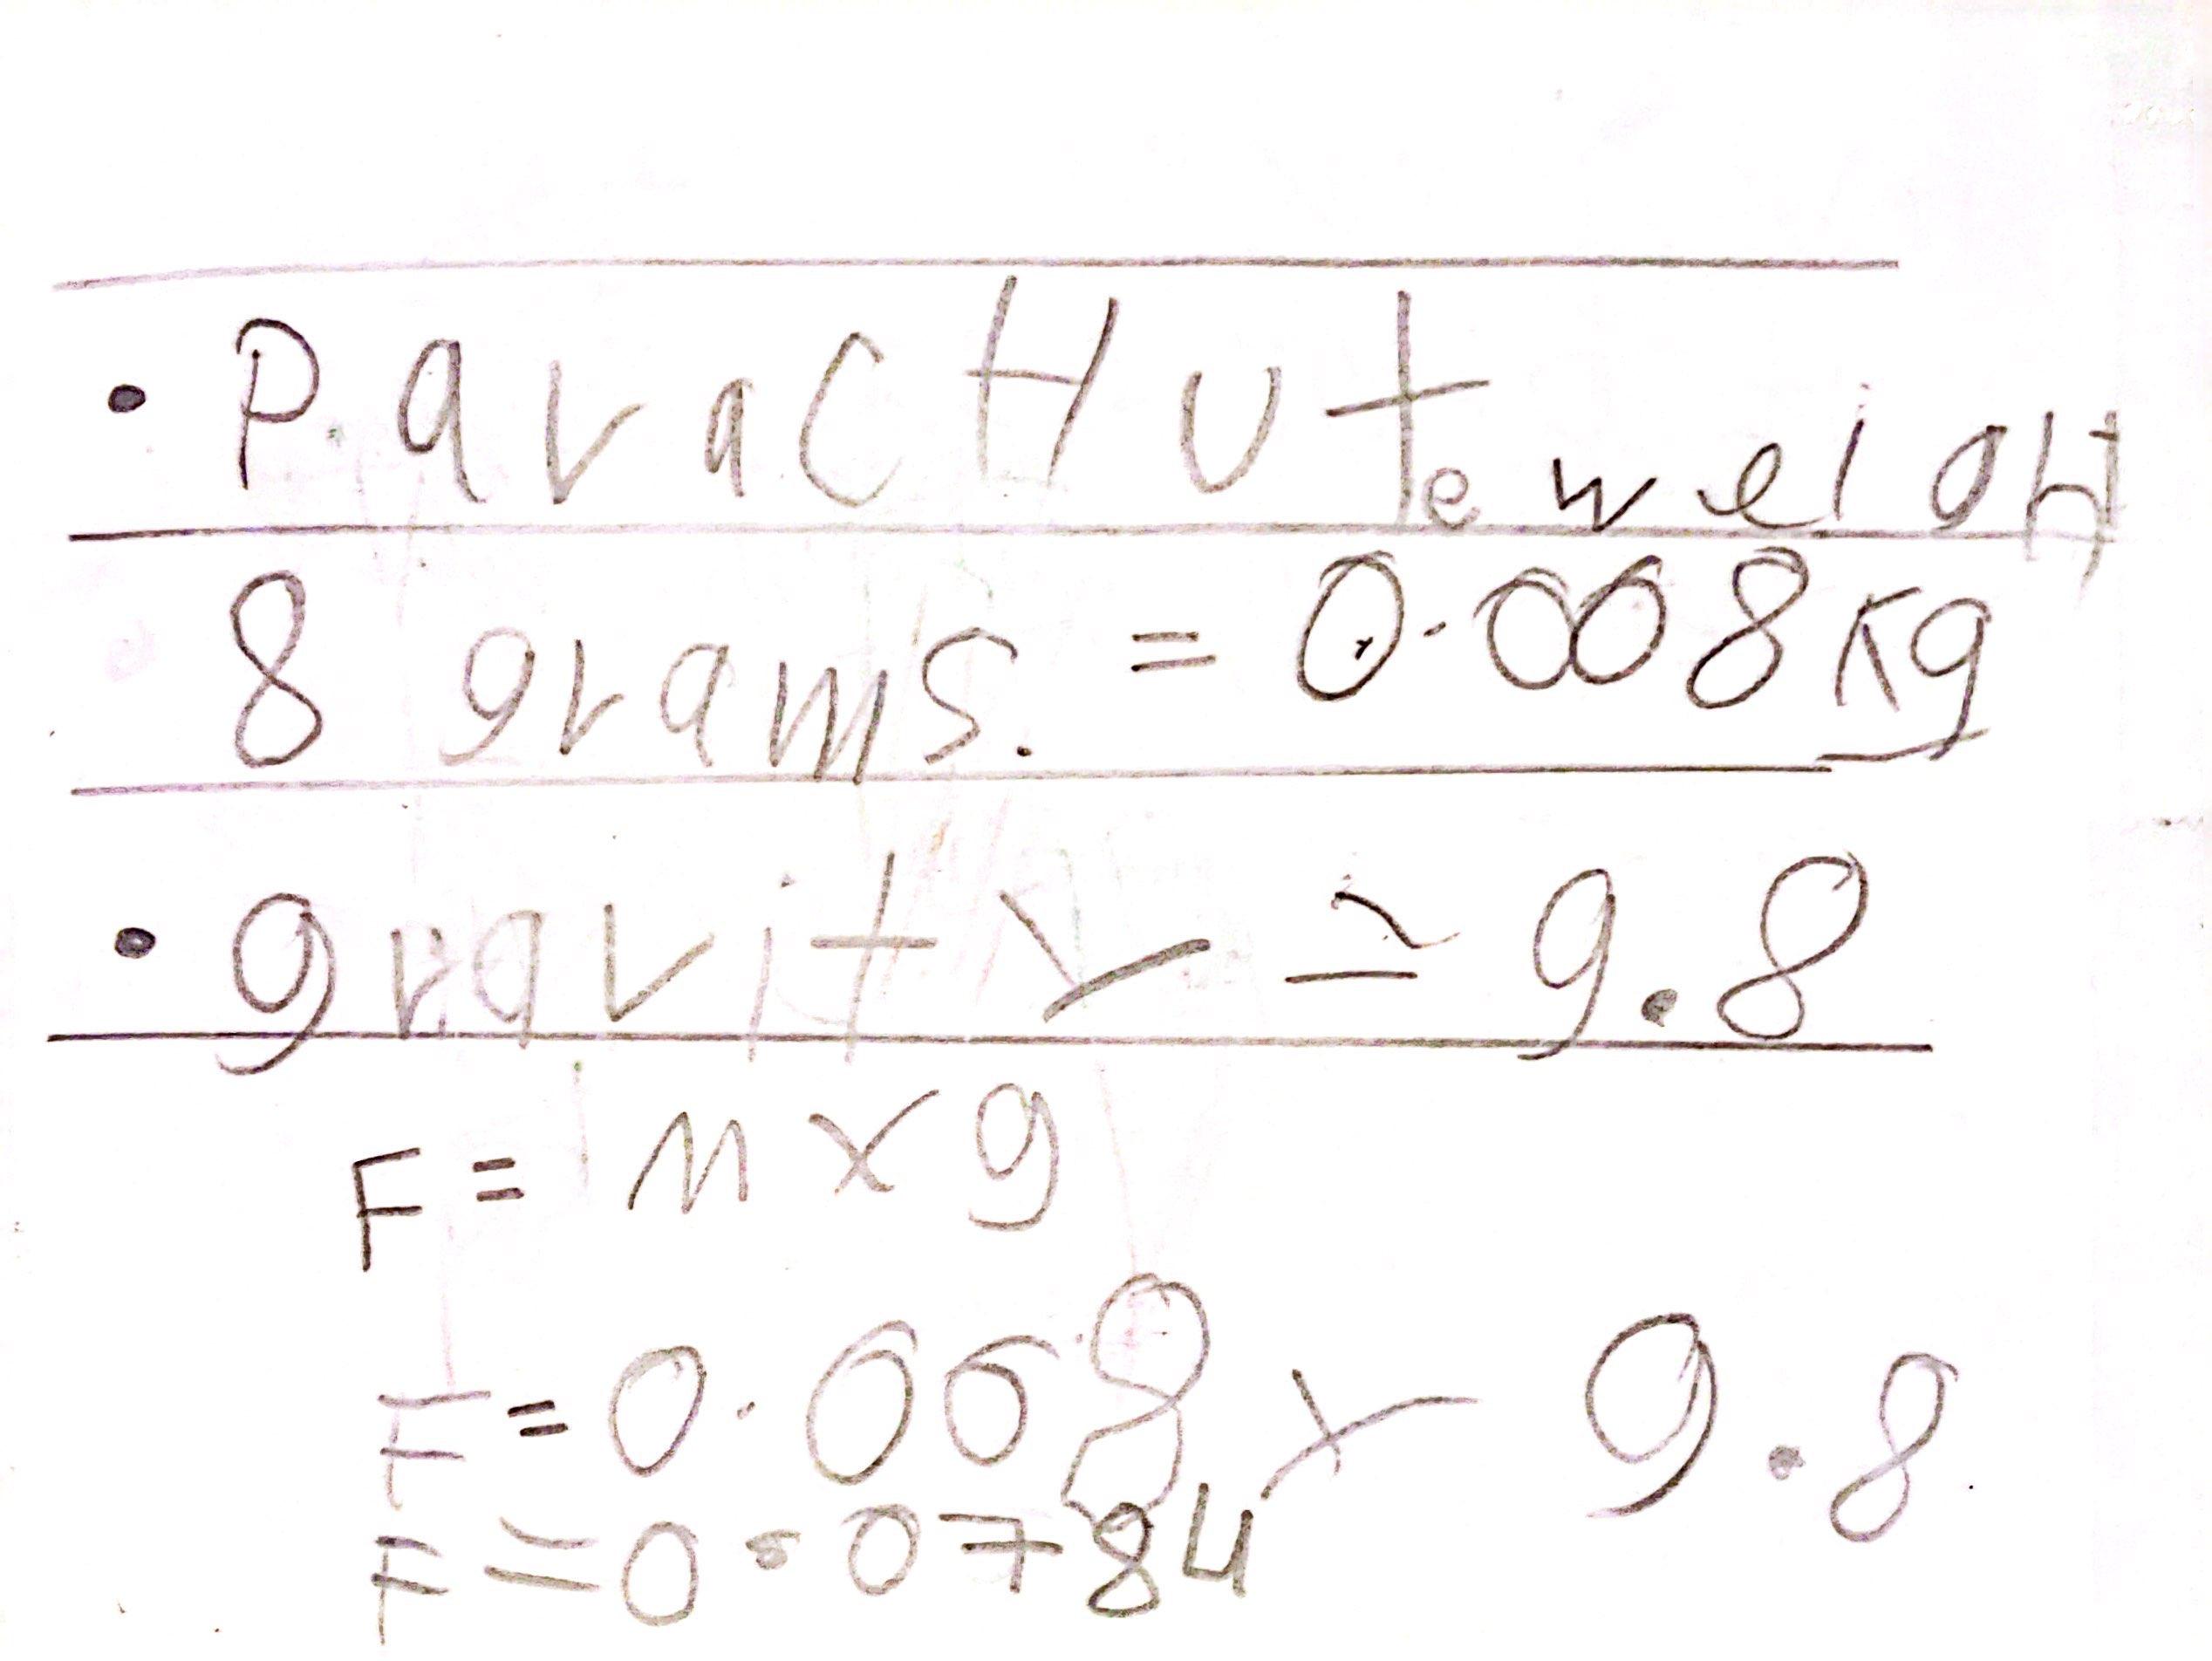 • ParacHute weigHt
8 grams. = 0.008 Kg
• gravity ≃ 9.8
F = M x g
F = 0.008 x 9.8
F = 0.0784